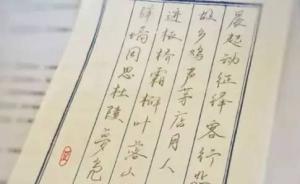 晨起动征铎客行悲
故乡鸡声茅店月人
迹板桥霜槲叶落山
驿墙因思杜陵梦凫